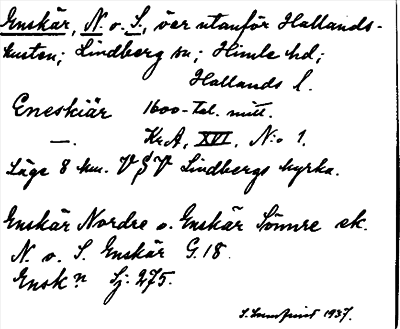 Enskär, N. o. S., öar utanför Hallands-
kusten; Lindberg sn; Himle hd;
Hallands l.
Eneskiär 1600-tal. mitt.
—. Kr.A. XVI. N:o 1.
Läge 8 km. V§V Lindbergs kyrka.
Enskär Nordre o. Enskär Sönnre ek.
N. o. S. Enskär G.18.
Ensk:n Sj: 275.
1937.